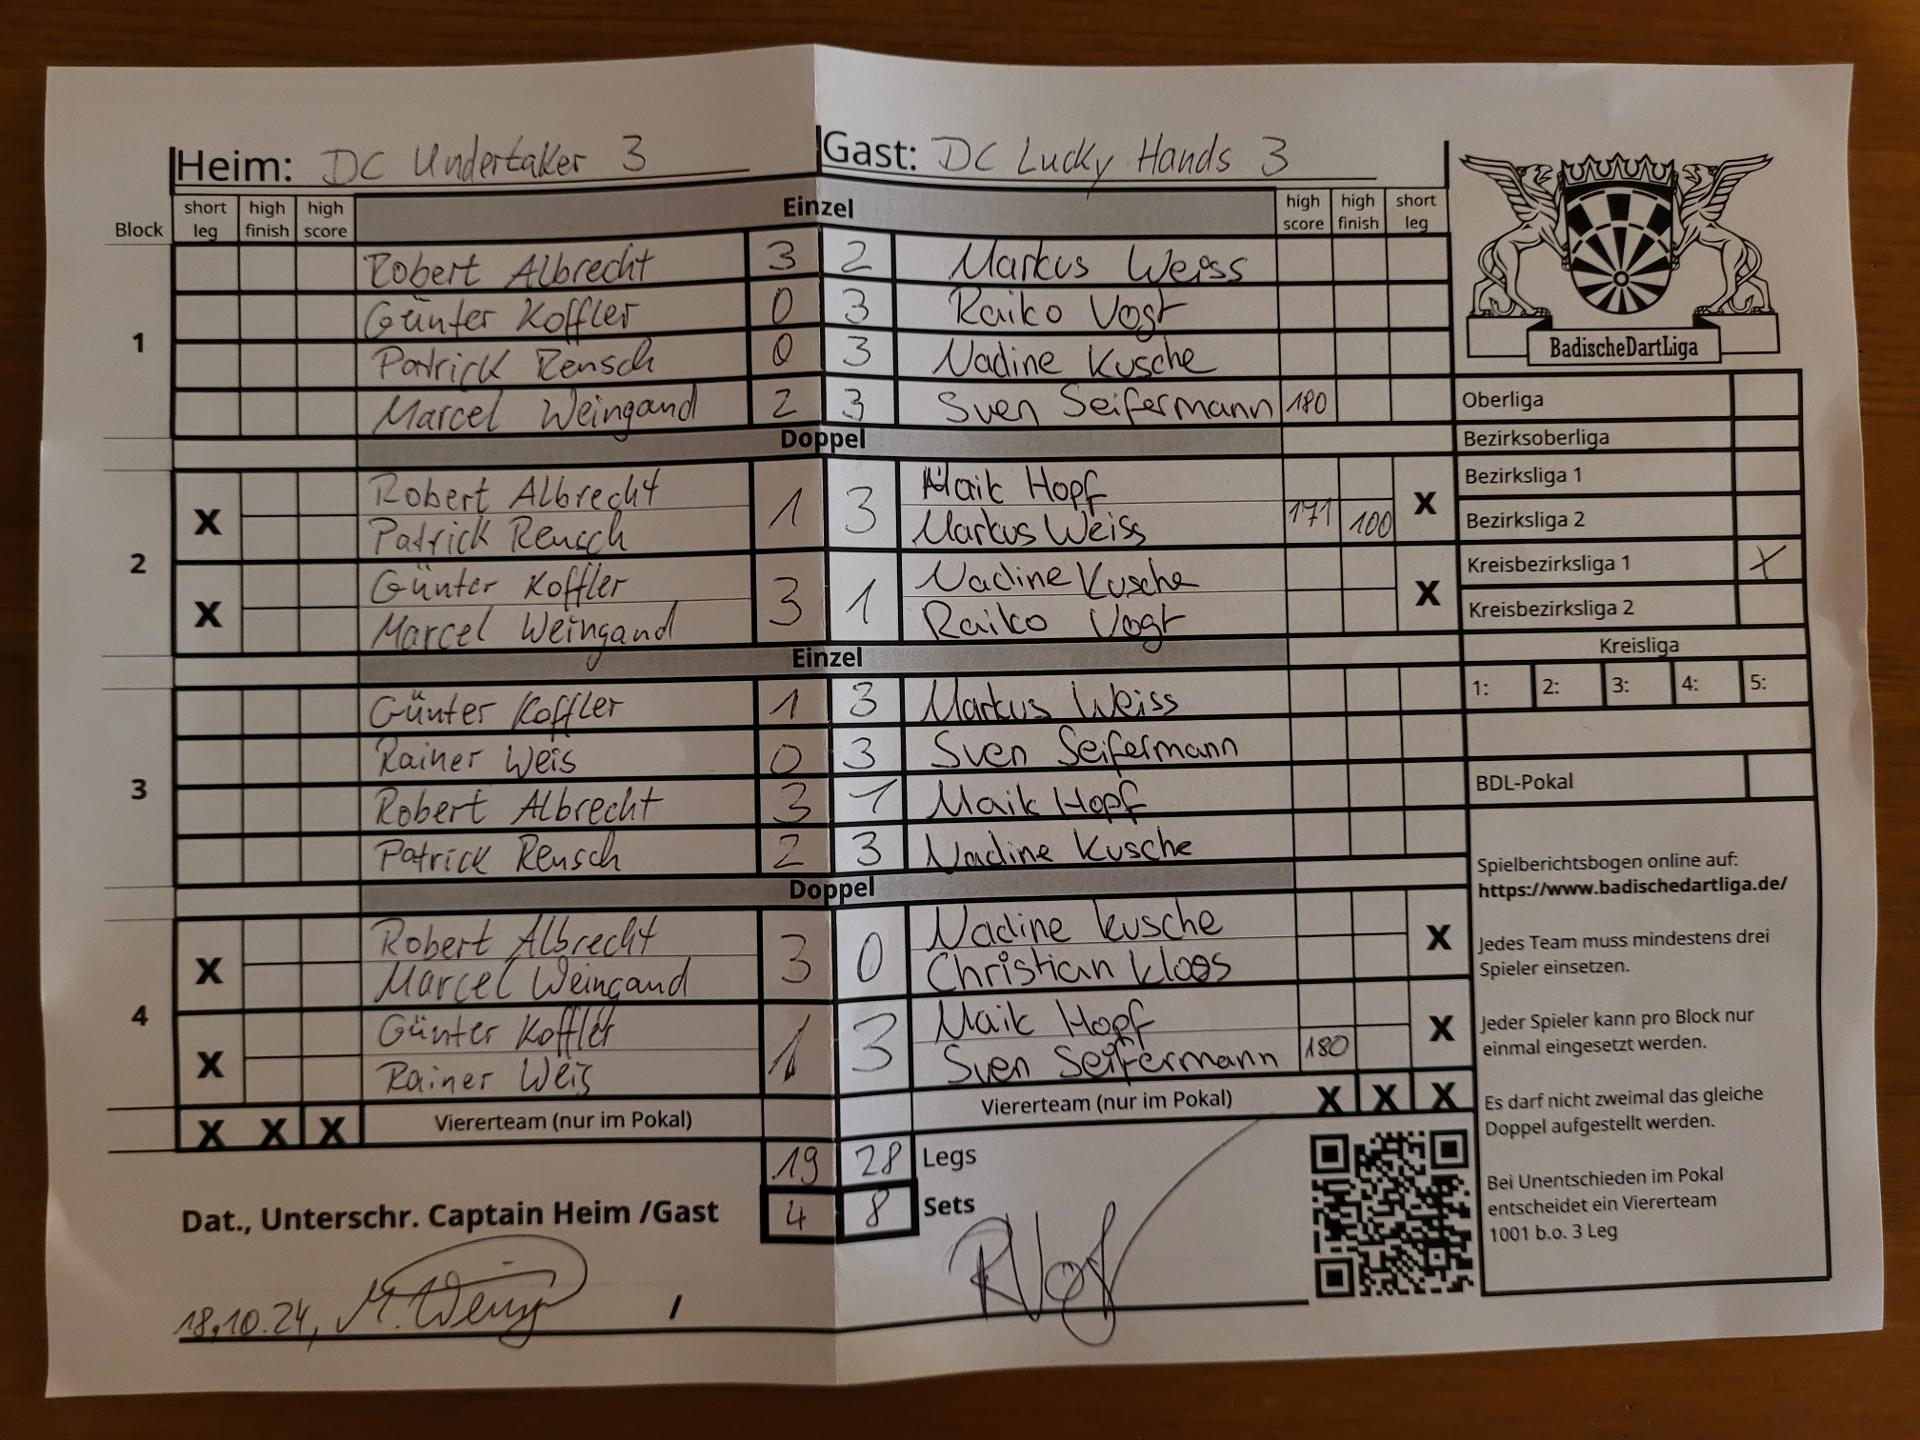 Heim: DC Undertaker 3 Gast: DC Lucky Hands 3
Block short leg high finish high score Einzel high score high finish short leg
1
Robert Albrecht 3 2 Markus Weiss
Günter Koffler 0 3 Raiko Vogt
Patrick Rensch 0 3 Nadine Kusche
Marcel Weingand 2 3 Sven Seifermann 180
Doppel
2
X Robert Albrecht 1 3 Maik Hopf X
Patrick Rensch Markus Weiss 171 100
X Günter Koffler 3 1 Nadine Kusche X
Marcel Weingand Raiko Vogt
Einzel
3
Günter Koffler 1 3 Markus Weiss
Rainer Weis 0 3 Sven Seifermann
Robert Albrecht 3 1 Maik Hopf
Patrick Rensch 2 3 Nadine Kusche
Doppel
4
X Robert Albrecht 3 0 Nadine Kusche X
Marcel Weingand Christian Kloos
X Günter Koffler 1 3 Maik Hopf X
Rainer Weis Sven Seifermann 180
X X X Viererteam (nur im Pokal) Viererteam (nur im Pokal) X X X
19 28 Legs
4 8 Sets
Dat., Unterschr. Captain Heim /Gast
18.10.24, M. Weing / RVogt
BadischeDartLiga
Oberliga
Bezirksoberliga
Bezirksliga 1
Bezirksliga 2
Kreisbezirksliga 1 X
Kreisbezirksliga 2
Kreisliga
1: 2: 3: 4: 5:
BDL-Pokal
Spielberichtsbogen online auf:
https://www.badischedartliga.de/
Jedes Team muss mindestens drei
Spieler einsetzen.
Jeder Spieler kann pro Block nur
einmal eingesetzt werden.
Es darf nicht zweimal das gleiche
Doppel aufgestellt werden.
Bei Unentschieden im Pokal
entscheidet ein Viererteam
1001 b.o. 3 Leg